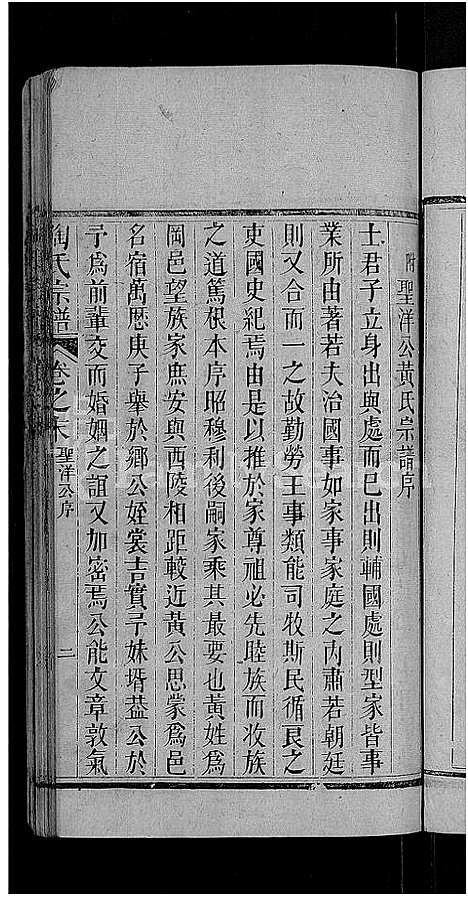 附聖洋公黃氏宗譜序
士君子立身出與處而已出則輔國處則型家皆事
業所由著若夫治國事如家事家庭之內肅若朝廷
則又合而一之故勤勞王事類能司牧斯民循良之
吏國史紀焉由是以推於家尊祖必先睦族而收族
之道篤根本序昭穆利後嗣家乘其最要也黃姓為
岡邑望族家庶安與西陵相距較近黃公思蒙為邑
名宿萬歷庚子舉於鄉公姪裳吉實予妹壻葢公於
予為前輩交而婚姻之誼又加密焉公能文章敦氣
陶氏宗譜 卷之末 聖洋公序 二